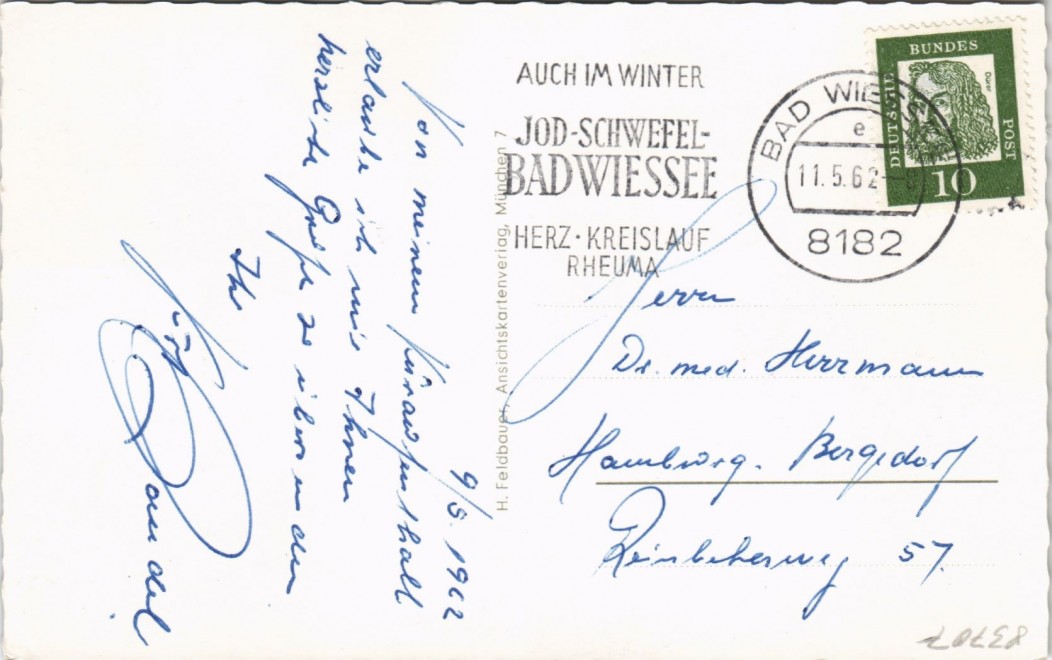 9/5. 1962
Von meinem Kuraufenthalt
erlaube ich mir Ihnen
herzliche Grüße zu übersenden
Ihr
Bandel
H. Feldbauer, Ansichtskartenverlag, München 7
AUCH IM WINTER
JOD-SCHWEFEL-
BAD WIESSEE
HERZ · KREISLAUF
RHEUMA
BAD WIESSEE
e
11.5.62
8182
DEUTSCHE
BUNDES
POST
Dürer
10
Herrn
Dr. med. Herrmann
Hamburg. Bergedorf
Reinbekerweg 57.
83707